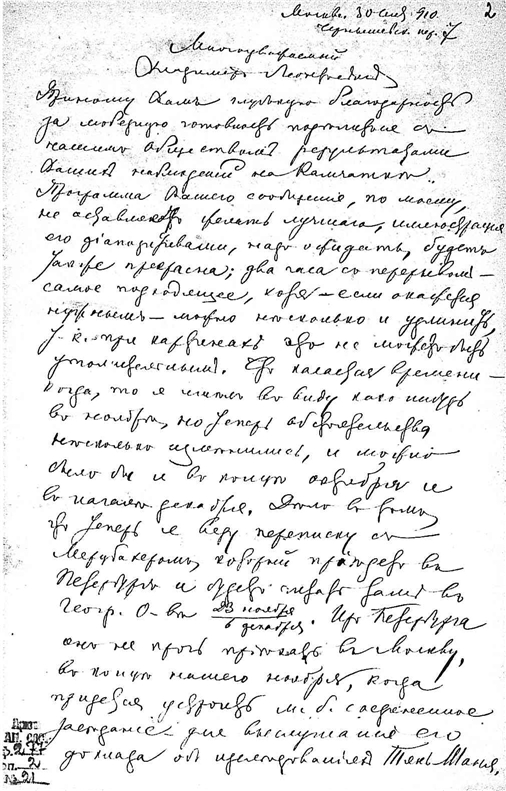 Москва. 30 сент. 910. 2
Чернышевск. пер. 7
Многоуважаемый
Владимир Леонтьевич
Приношу Вамъ глубокую благодарность
за любезную готовность подѣлиться съ
нашимъ обществомъ результатами
Вашихъ наблюденій на Камчаткѣ.
Программа Вашего сообщенія, по моему,
не оставляетъ желать лучшаго, иллюстрація
его діапозитивами, надо ожидать, будетъ
также прекрасна; два часа съ перерывомъ –
самое подходящее, хотя – если окажется
нужнымъ – можно нѣсколько и удлинить,
т. к. при картинахъ это не можетъ быть
утомительнымъ. Что касается времени –
когда, то я имѣлъ въ виду какъ нибудь
въ ноябрѣ, но теперь обстоятельства
нѣсколько измѣнились, и можно
было бы и въ концѣ октября и
въ началѣ декабря. Дѣло въ томъ
что теперь я веду переписку съ
Мерцбахеромъ, который пріѣдетъ въ
Петербургъ и будетъ дѣлать докл. въ
Геогр. О-вѣ 23 ноября / 6 декабря. Изъ Петербурга
онъ не прочь пріѣхать въ Москву,
въ концѣ нашего ноября, когда
придется устроить м. б. соединенное
засѣданіе для выслушанія его
доклада объ изслѣдованіяхъ Тянь Шаня.
АН
2
№ 21